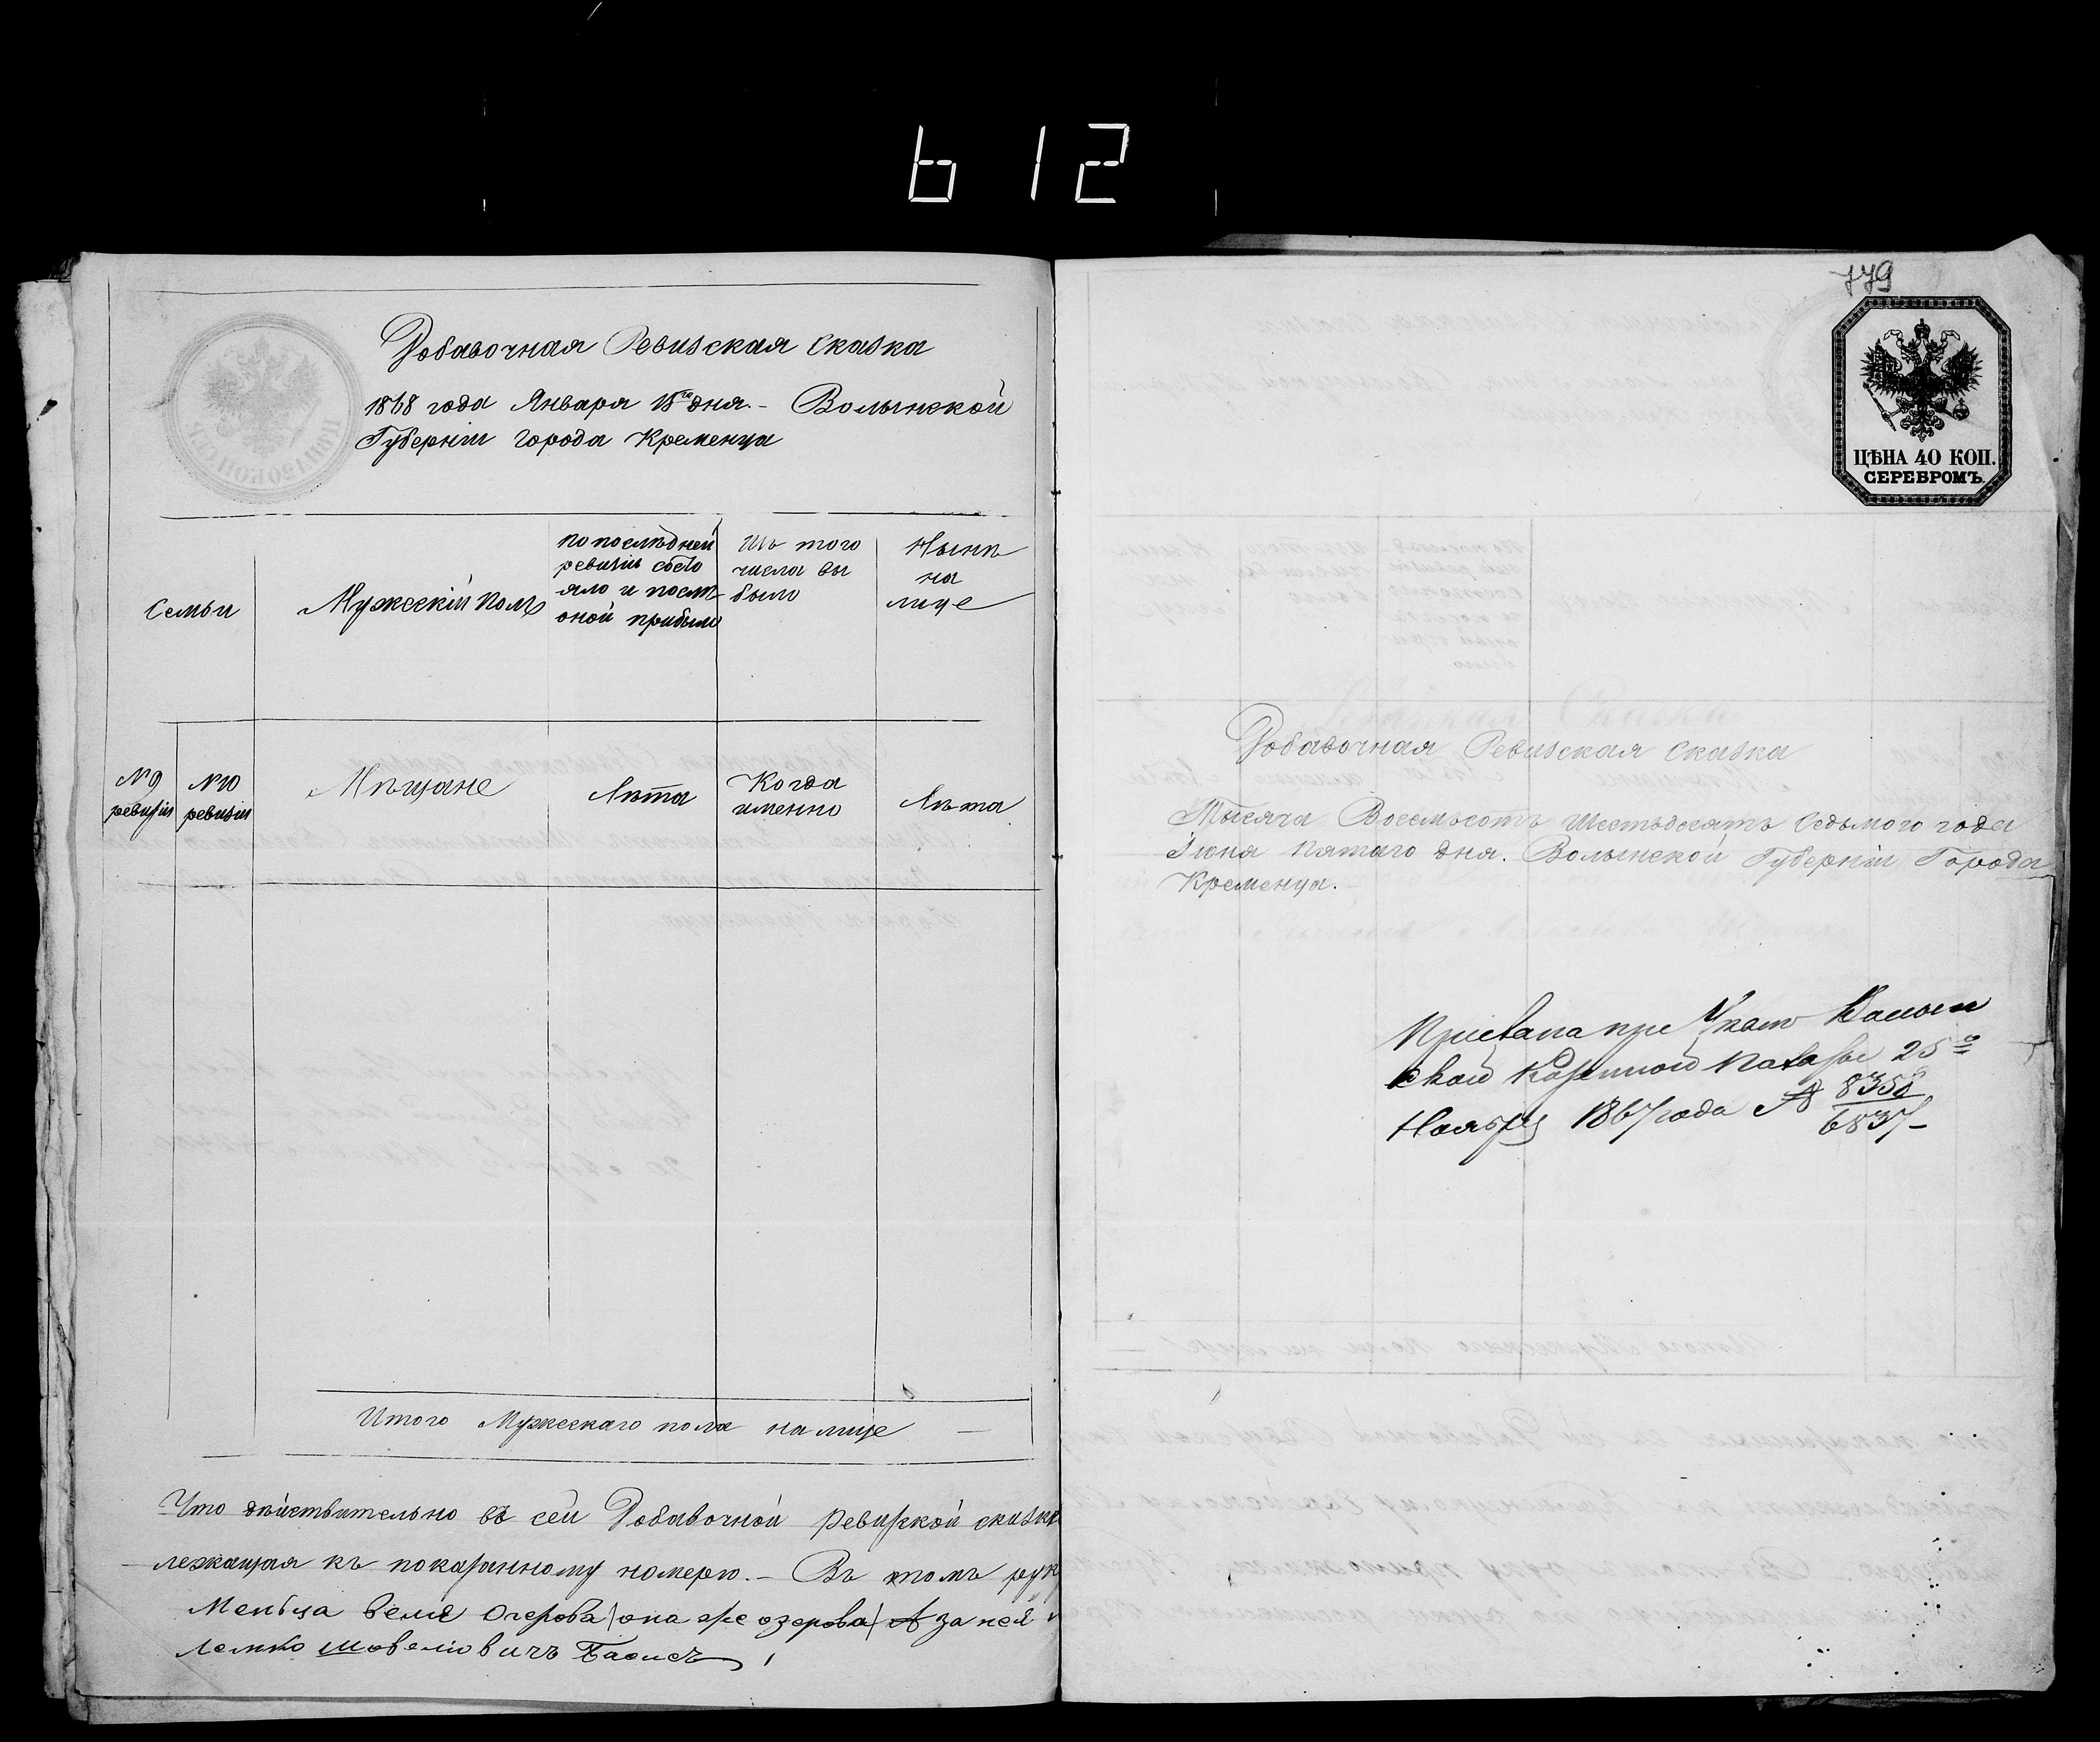 612
Добавочная Ревизская Сказка
1868 года Января 15го дня.- Волынской
Губерніи города Кременца
Семьи
Мужескій полъ
по послѣдней
ревизіи состо
яло и послѣ
оной прибыло
Изъ того
числа вы
было
Нынѣ
на
лице
№ 9
ревизіи
№ 10
ревизіи
Мѣщане
Лѣта
Когда
именно
Лѣта
Итого Мужескаго пола на лице —
Что дѣйствительно въ сей Добавочной Ревизской сказкѣ
лежащая къ показанному номерю.- Въ томъ рук
она же озерова А за нея
779
ЦѢНА 40 КОП.
СЕРЕБРОМЪ.
Добавочная Ревизская Сказка
Тысяча Восемьсотъ Шестьдесятъ Седьмого года
Іюня Пятаго дня. Волынской Губерніи Города
Кременца.
При Указѣ Волын
ской Казенной Палаты 25го
Ноября 1867 года №
6837